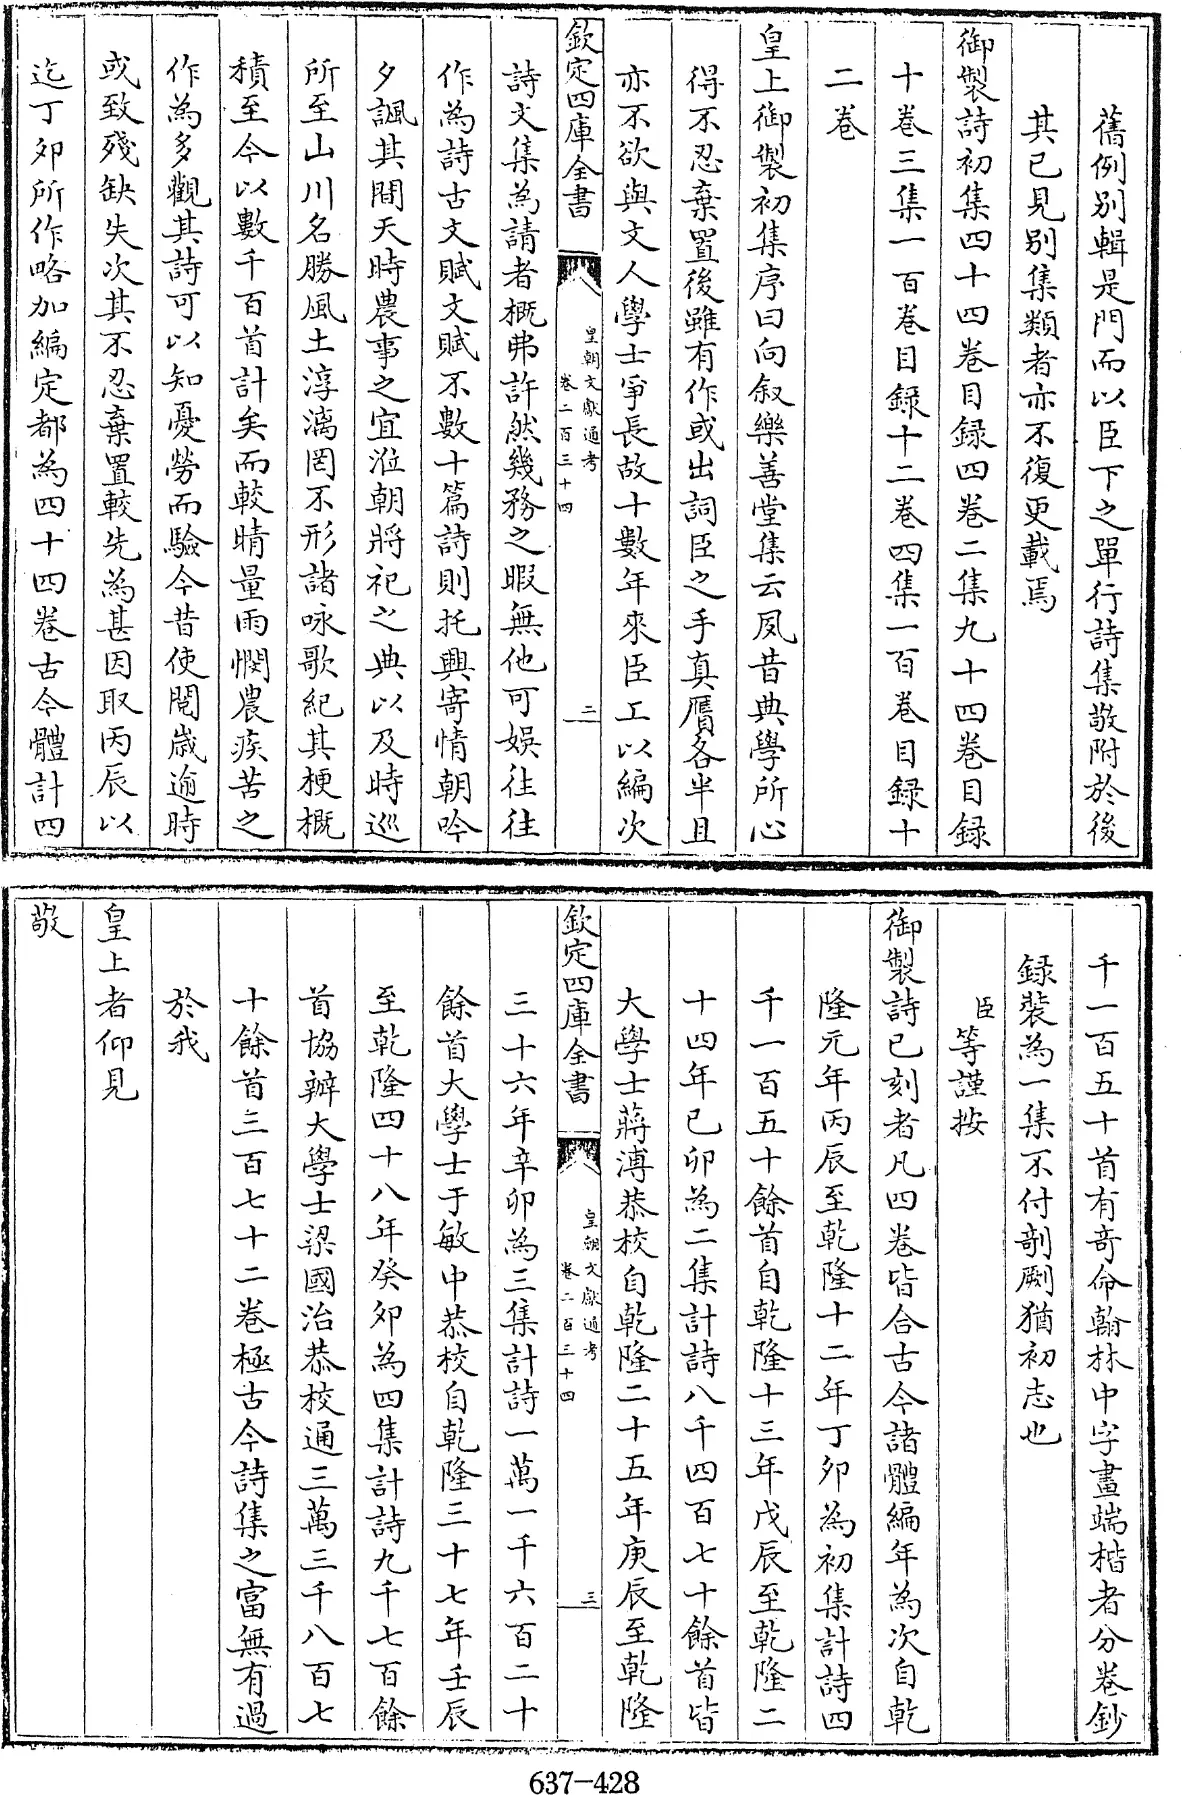 舊例别輯是門而以臣下之單行詩集敬附於後
其已見别集類者亦不復更載焉
御製詩初集四十四卷目録四卷二集九十四卷目録
十卷三集一百卷目録十二卷四集一百卷目録十
二卷
皇上御製初集序曰向叙樂善堂集云夙昔典學所心
得不忍棄置後雖有作或出詞臣之手真贋各半且
亦不欲與文人學士爭長故十數年來臣工以編次
欽定四庫全書
皇朝文獻通考
卷二百三十四
二
詩文集為請者概弗許然幾務之暇無他可娱往往
作為詩古文賦文賦不數十篇詩則托興寄情朝吟
夕諷其間天時農事之宜涖朝將祀之典以及時巡
所至山川名勝風土淳漓罔不形諸咏歌紀其梗概
積至今以數千百首計矣而較晴量雨憫農疾苦之
作為多觀其詩可以知憂勞而驗今昔使閱歳逾時
或致殘缺失次其不忍棄置較先為甚因取丙辰以
迄丁卯所作略加編定都為四十四卷古今體計四
千一百五十首有奇命翰林中字畫端楷者分卷鈔
録裝為一集不付剞劂猶初志也
臣等謹按
御製詩已刻者凡四卷皆合古今諸體編年為次自乾
隆元年丙辰至乾隆十二年丁卯為初集計詩四
千一百五十餘首自乾隆十三年戊辰至乾隆二
十四年己卯為二集計詩八千四百七十餘首皆
大學士蔣溥恭校自乾隆二十五年庚辰至乾隆
欽定四庫全書
皇朝文獻通考
卷二百三十四
三
三十六年辛卯為三集計詩一萬一千六百二十
餘首大學士于敏中恭校自乾隆三十七年壬辰
至乾隆四十八年癸卯為四集計詩九千七百餘
首協辦大學士梁國治恭校通三萬三千八百七
十餘首三百七十二卷極古今詩集之富無有過
於我
皇上者仰見
敬
637-428